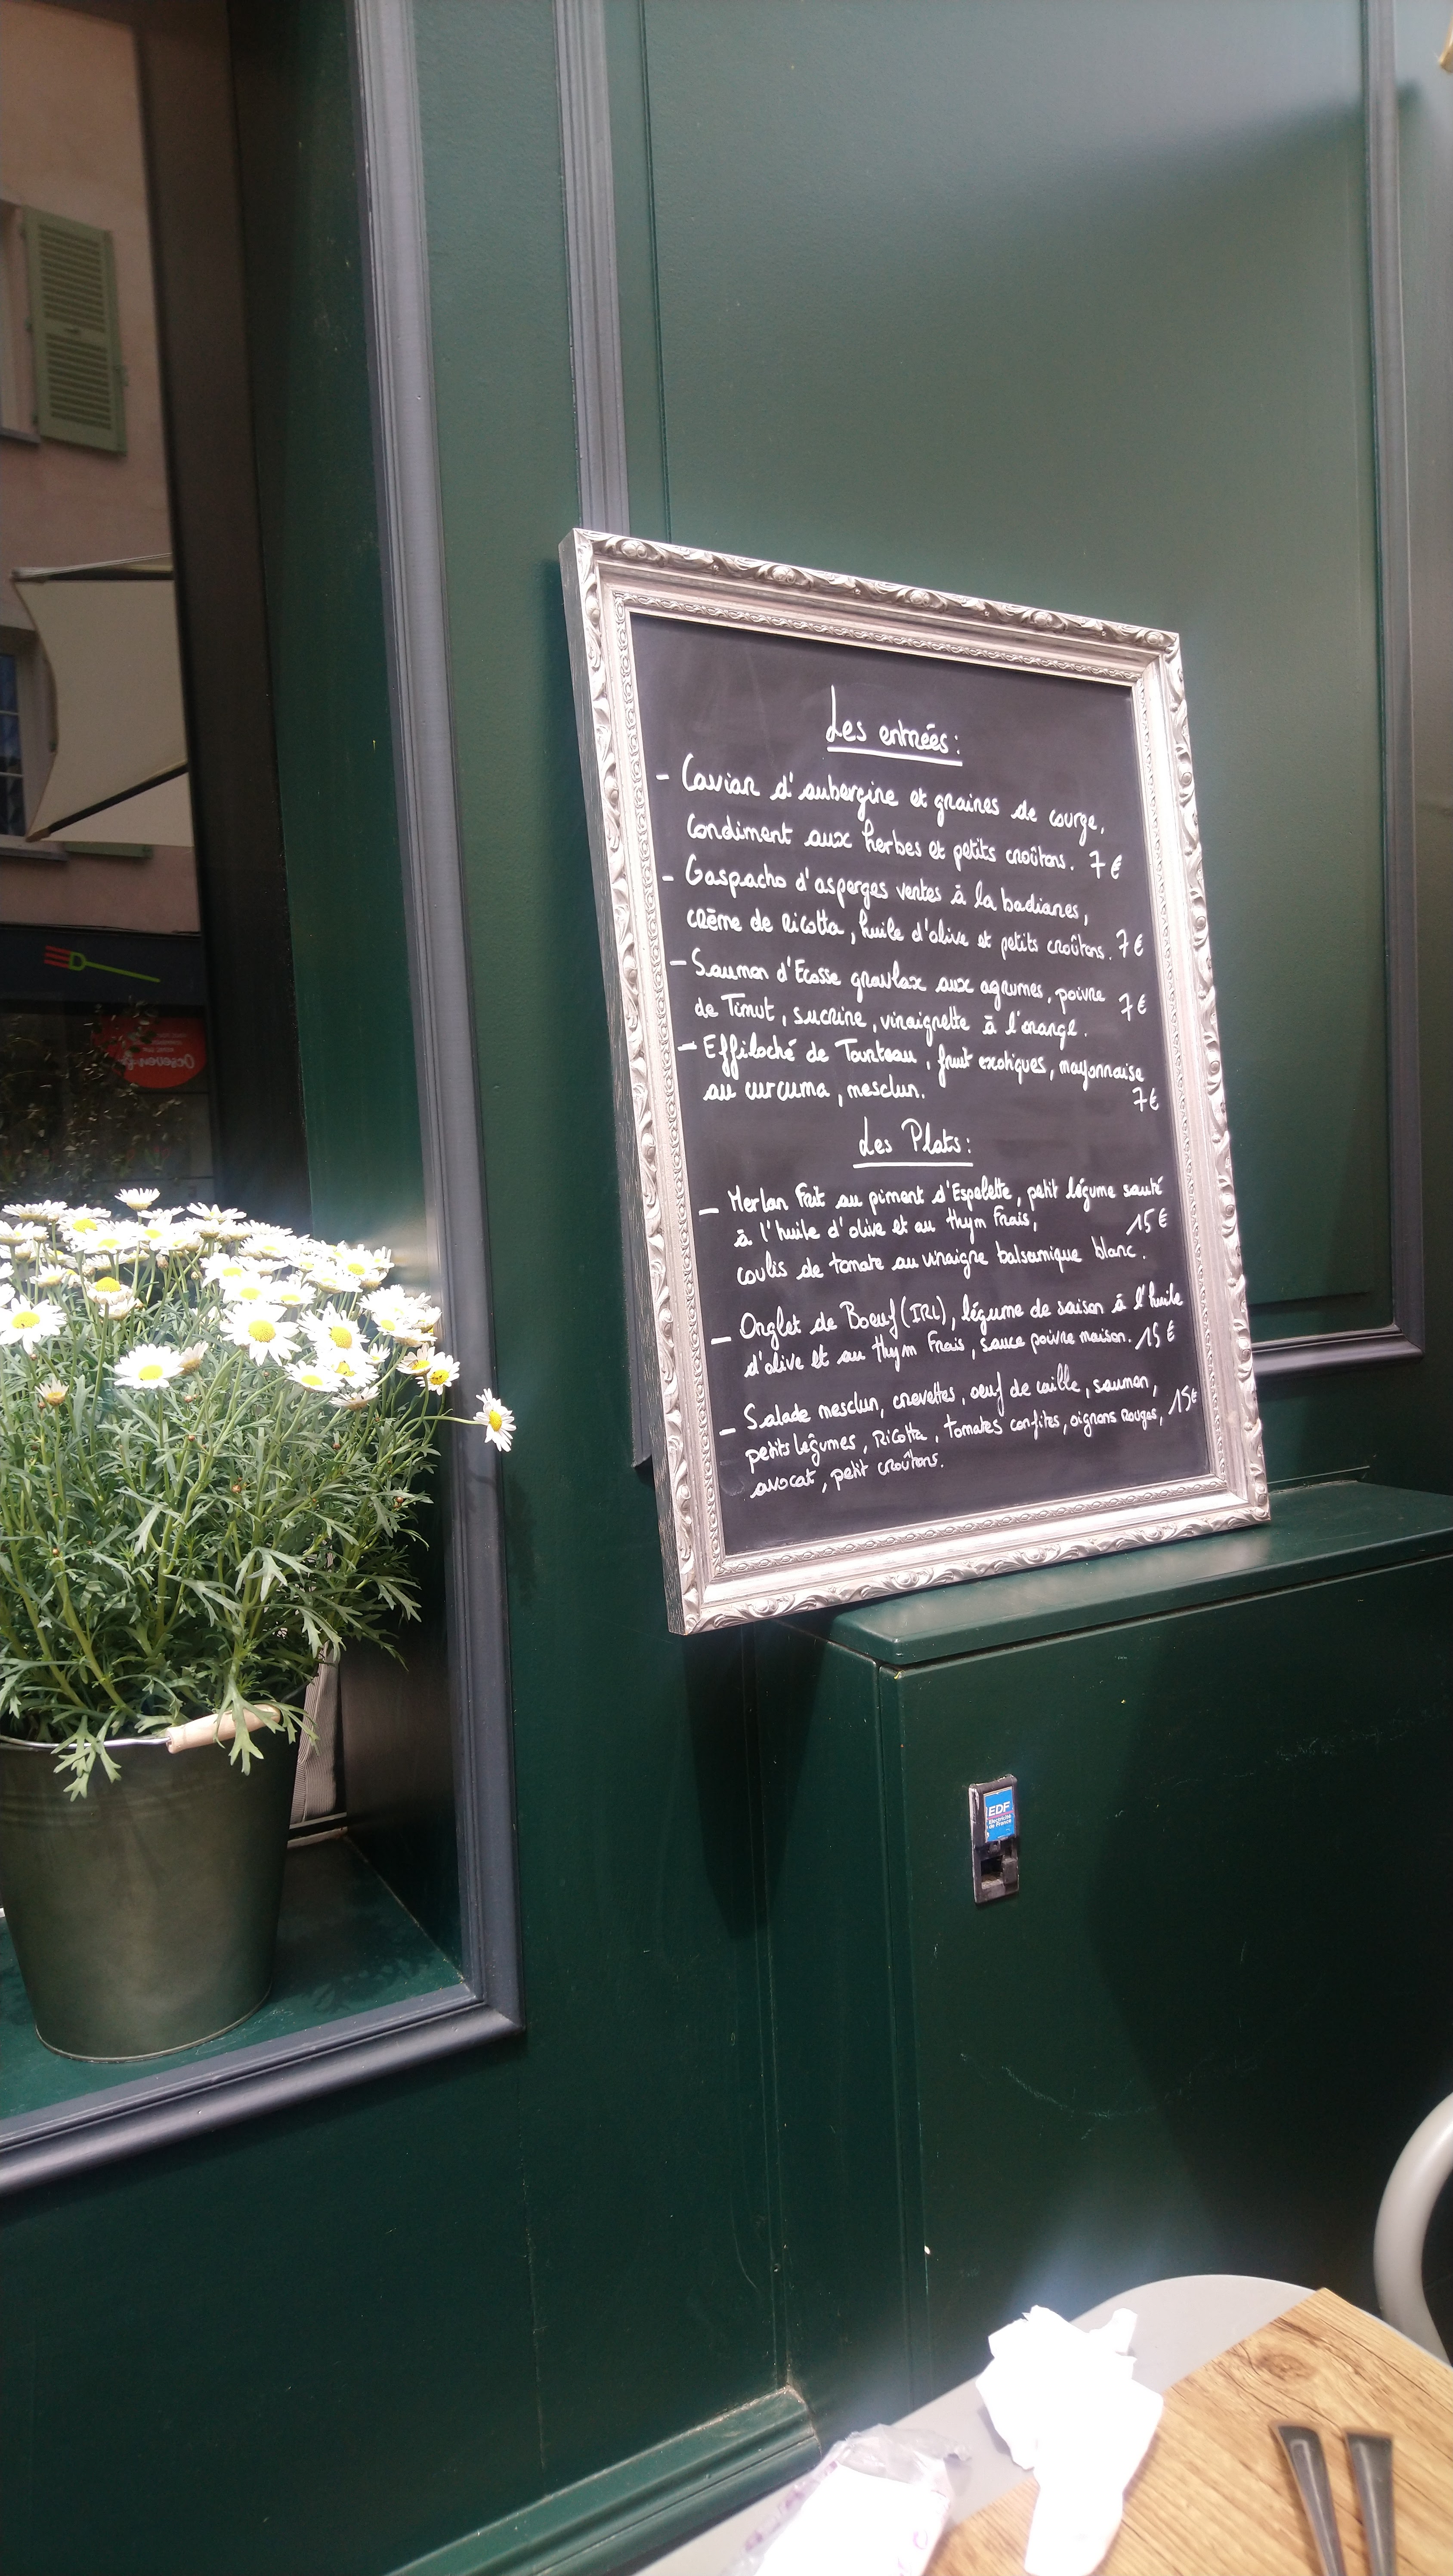 Les entrées:
- Caviar d'aubergine et graines de courge,
Condiment aux herbes et petits croûtons. 7€
- Gaspacho d'asperges vertes à la badianes,
crème de Ricotta, huile d'olive et petits croûtons. 7€
- Saumon d'Ecosse gravlax aux agrumes, poivre 7€
de Timut, sucrine, vinaigrette à l'orange.
- Effiloché de Tourteau, fruit exotiques, mayonnaise
au curcuma, mesclun. 7€
Les Plats:
- Merlan Frit au piment d'Espelette, petit légume sauté
à l'huile d'olive et au thym Frais, 15€
coulis de tomate au vinaigre balsamique blanc.
- Onglet de Boeuf (IRL), légume de saison à l'huile
d'olive et au thym Frais, sauce poivre maison. 15€
- Salade mesclun, crevettes, oeuf de caille, saumon,
petits légumes, Ricotta, tomates confites, oignons Rouges, 15€
avocat, petit croûtons.
EDF
Electricité
de France